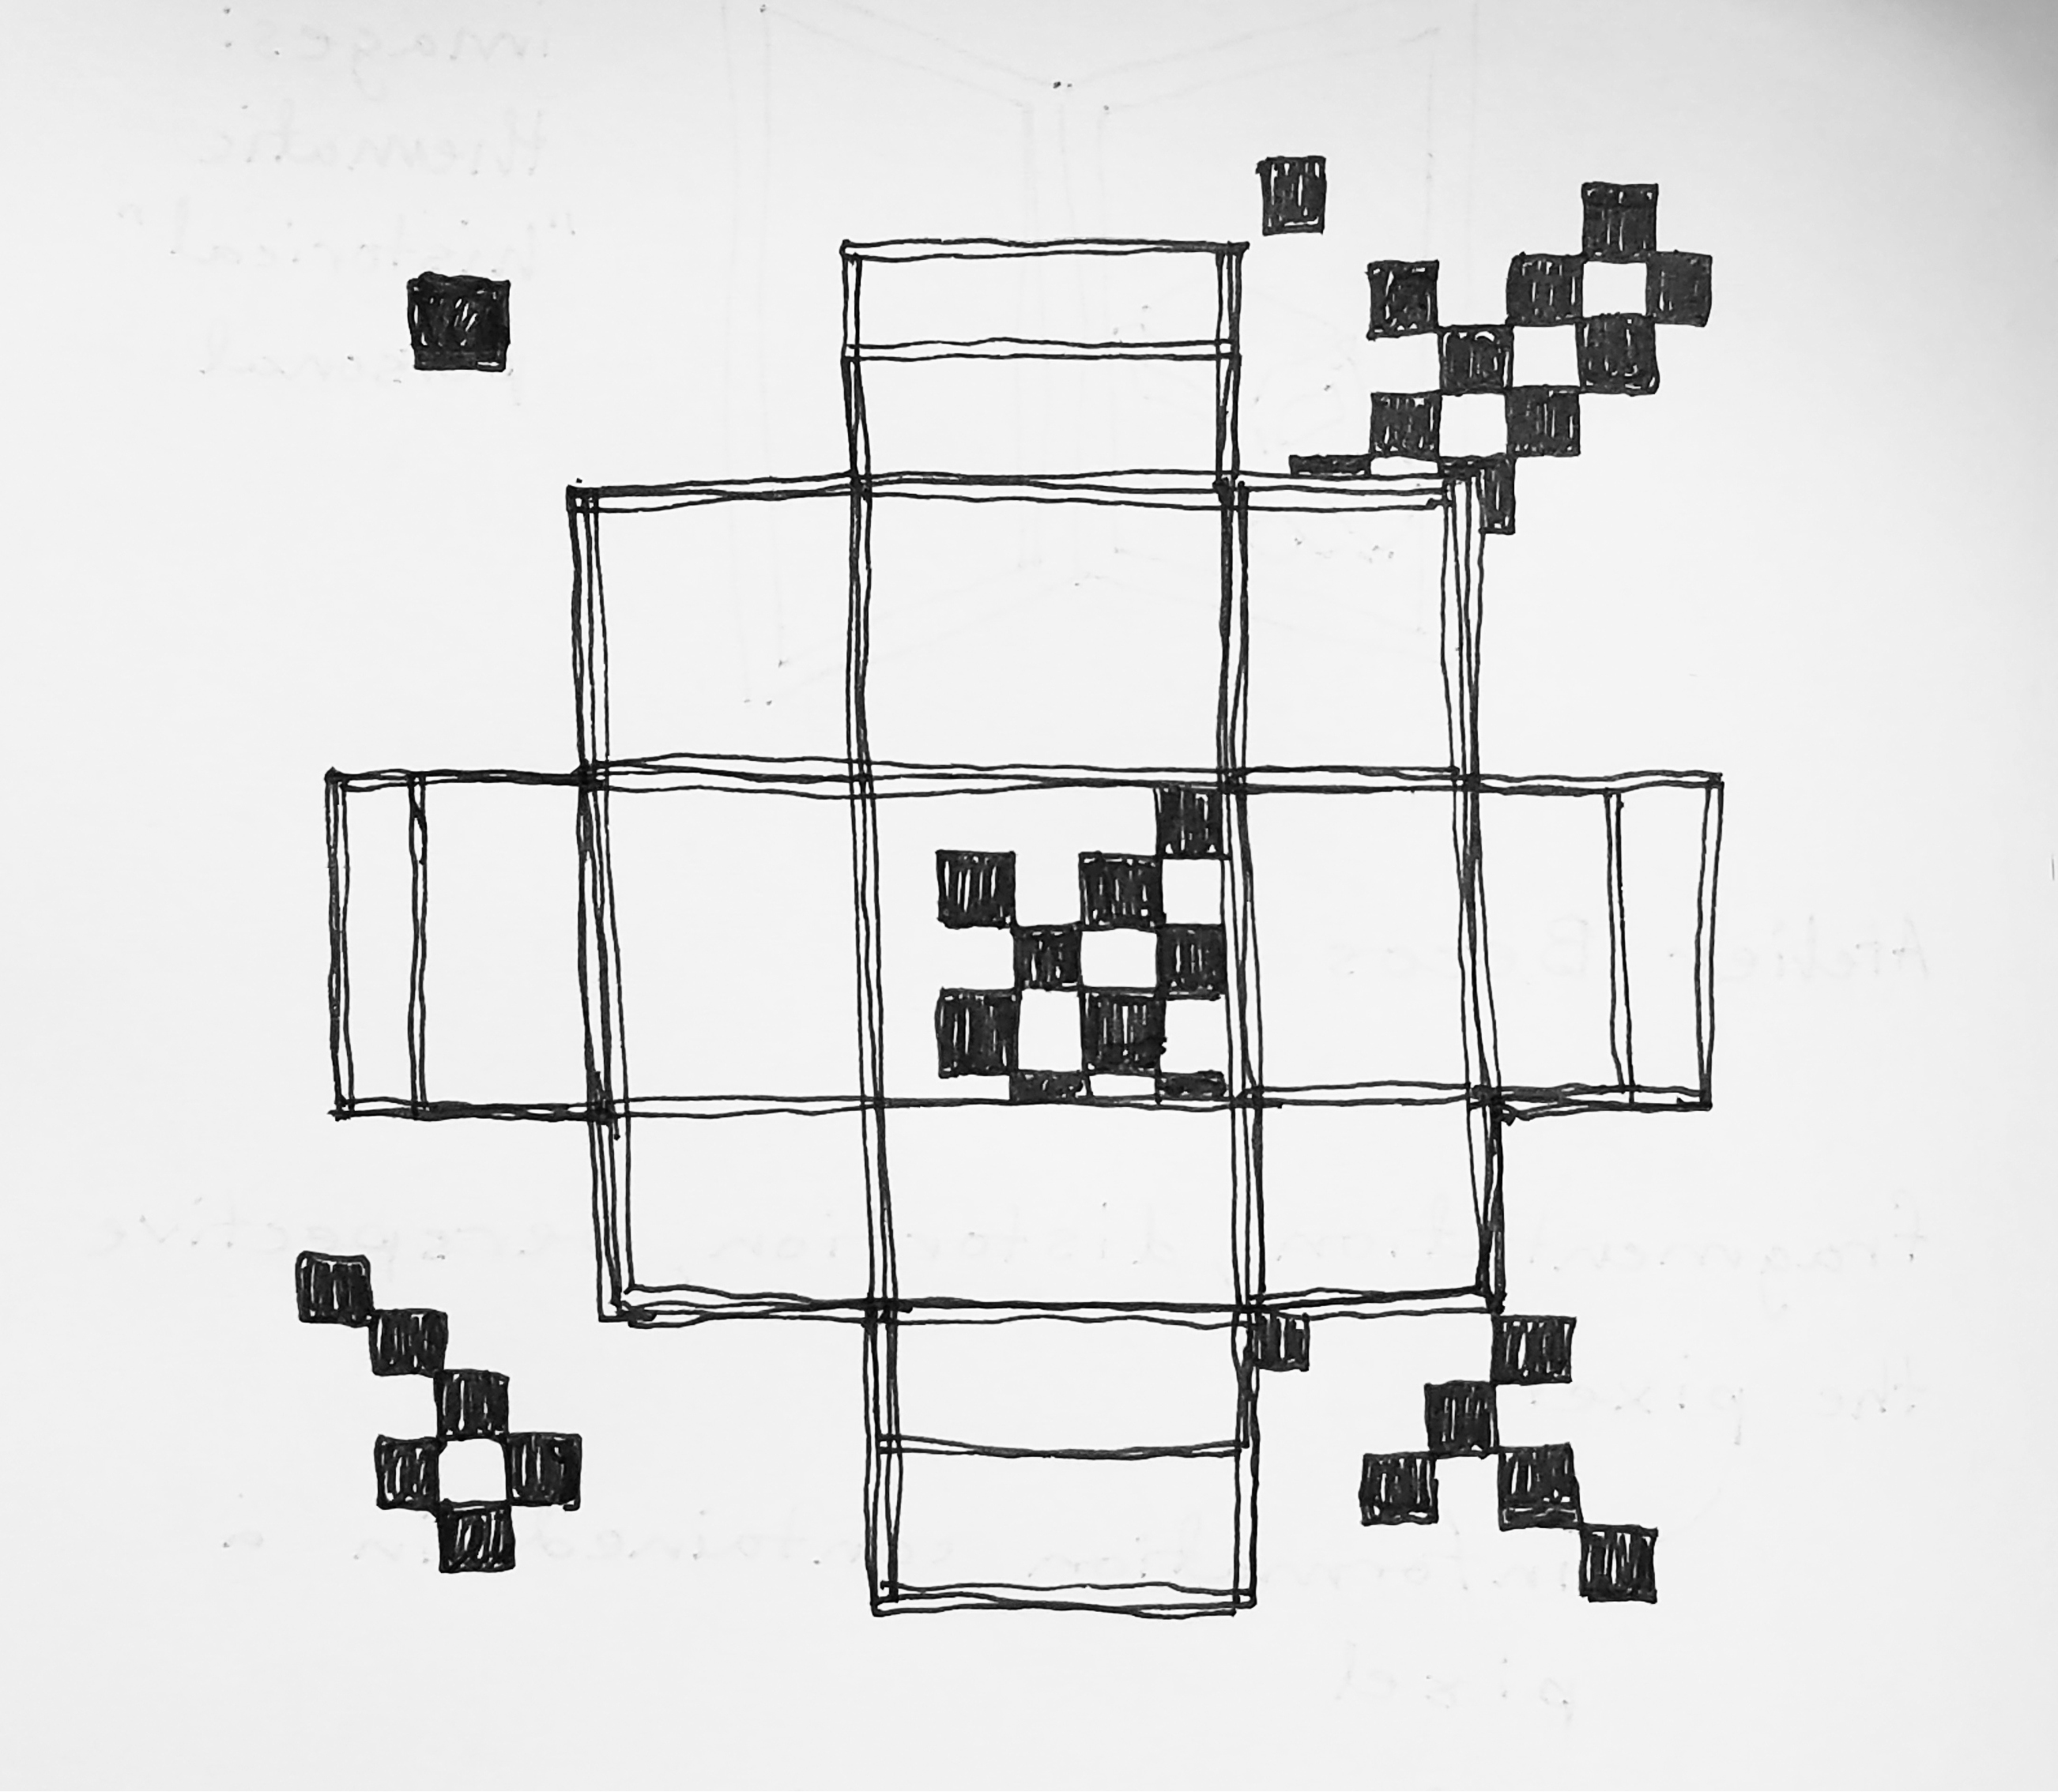 images:
thematic
"historical"
personal
Atelier
fragmentation, distortion, perspective
the pixel
information contained in a
pixel